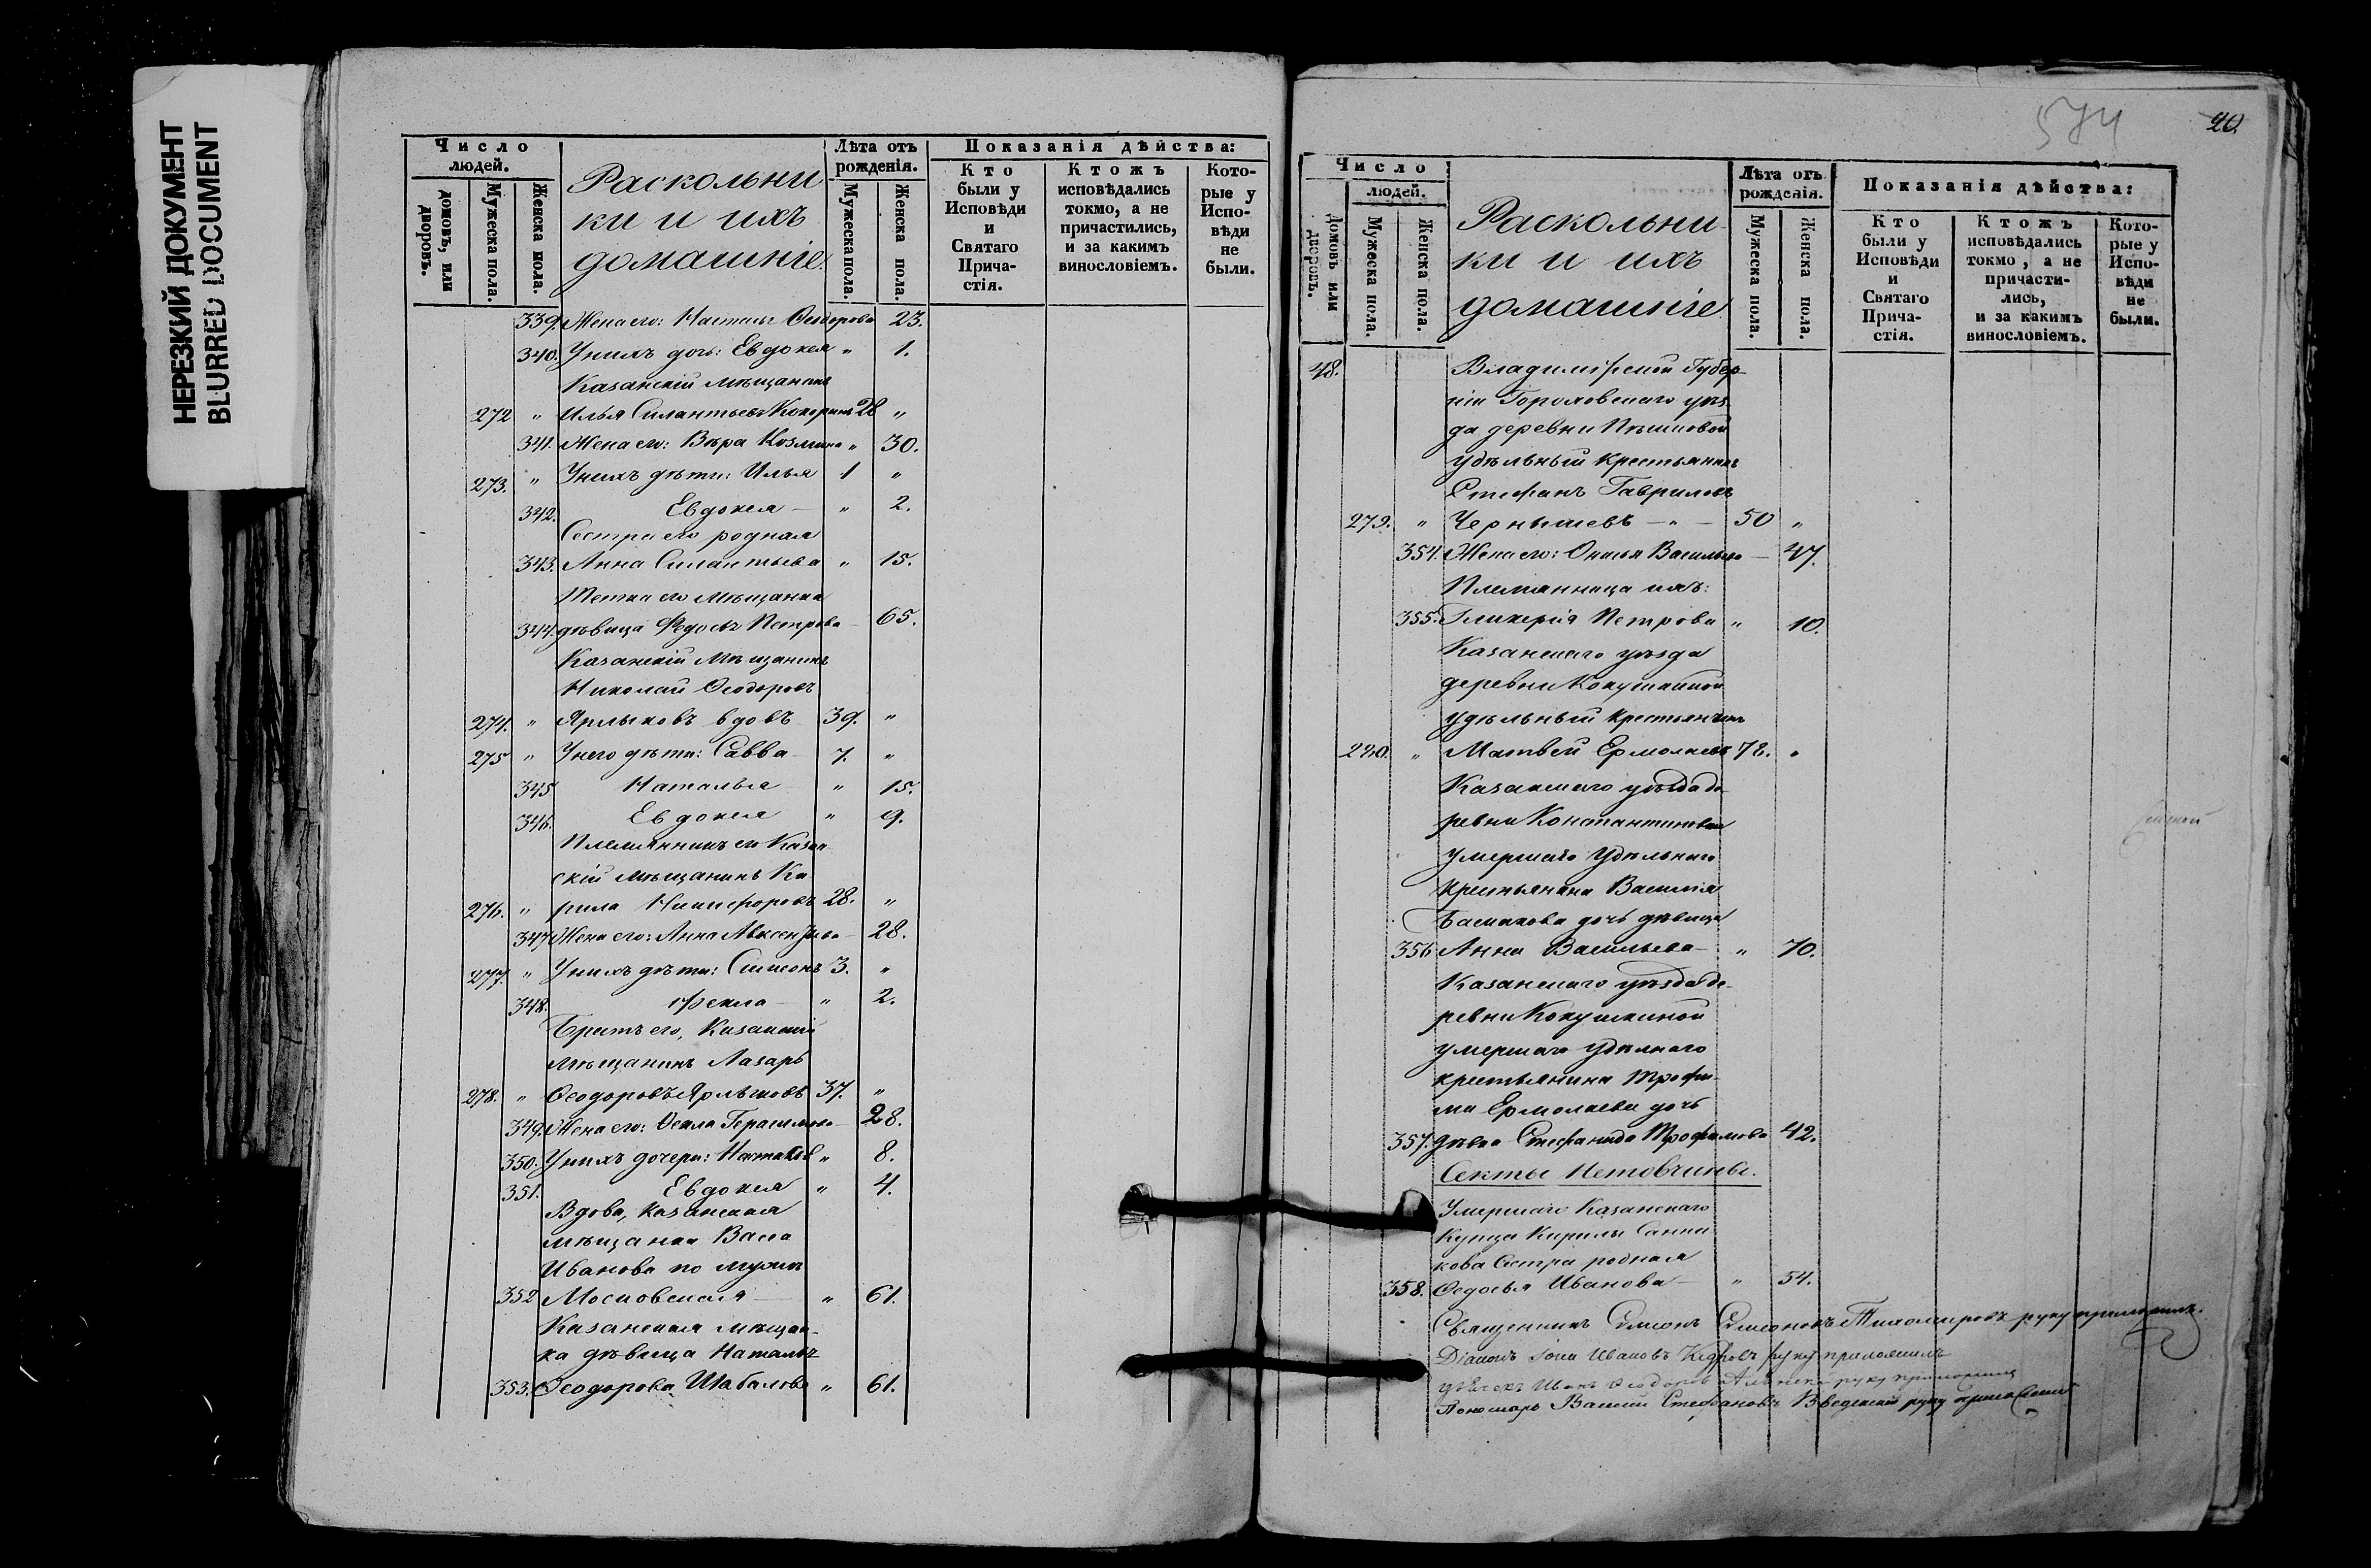 НЕРЕЗКИЙ ДОКУМЕНТ
BLURRED DOCUMENT
Число людей.
домовъ, или дворовъ.
Мужеска пола.
Женска пола.
Раскольни
ки и ихъ
домашніе.
Лѣта отъ рожденія.
Мужеска пола.
Женска пола.
Показанія дѣйства:
Кто были у Исповѣди и Святаго Прича-стія.
Ктожъ исповѣдались токмо, а не причастились, и за какимъ винословіемъ.
Кото-рые у Испо-вѣди не были.
339. Жена его: Наталья Ѳеодорова 23.
340. У нихъ дочь: Евдокея " 1.
Казанскій мѣщанинъ
272 " Илья Силантьевъ Кокоринъ 28 "
341. Жена его: Вѣра Козмина " 30.
273. " У нихъ дѣти: Илья 1 "
342. Евдокея " 2.
Сестра его родная
343. Анна Силантьева " 15.
Тетка его мѣщанка
344. дѣвица Петрова 65.
Казанскій мѣщанинъ
Николай Ѳеодоровъ
274. " Ярлыковъ вдовъ 39. "
275 " У него дѣти: Савва 7. "
345 Наталья " 15.
346. Евдокея " 9.
Племянникъ его Казан
скій мѣщанинъ Ки
276. " рила Никифоровъ 28. "
347. Жена его: Анна 28.
277. " У нихъ дѣти: Симеонъ 3. "
348. Фекла " 2.
Братъ его, Казанскій
мѣщанинъ Лазарь
278. " Ѳеодоровъ Ярлыковъ 37. "
349. Жена его: Ѳекла Герасимова 28.
350. У нихъ дочери: Наталья " 8.
351. Евдокея " 4.
Вдова, казанская
мѣщанка Васса
Иванова по мужѣ
352 Московская " 61.
Казанская мѣщан-
ка дѣвица Наталья
353. Ѳеодорова Шабалова " 61.
574
20.
Число людей.
домовъ или дворовъ.
Мужеска пола.
Женска пола.
Раскольни
ки и ихъ
домашніе
Лѣта отъ рожденія.
Мужеска пола.
Женска пола.
Показанія дѣйства:
Кто были у Исповѣди и Святаго Прича-стія.
Ктожъ исповѣдались токмо, а не причасти-лись, и за какимъ винословіемъ.
Кото-рые у Испо-вѣди не были.
48. Владимірской Губер-
ніи Гороховскаго уѣз-
да деревни
удѣльный крестьянинъ
Стефанъ Гавриловъ
279. " Чернышевъ — " — 50 "
354. Жена его: Васильева — 47.
Племянница ихъ:
355. Гликерія Петрова " 10.
Казанскаго уѣзда
деревни Кокушкиной
удѣльный крестьянинъ
280. " Матвей Ермолаевъ 78. "
Казанскаго уѣзда де
ревни Константиновки
умершаго удѣльнаго
крестьянина Василія
Басманова дочь дѣвица
356 Анна Васильева " 70.
Казанскаго уѣзда де-
ревни Кокушкиной
умершаго удѣлнаго
крестьянина Трофи-
ма Ермолаева дочь
357. дѣвка Стефанида Трофимова 42.
Секты Нетовчины.
Умершаго Казанскаго
Купца Кирилы Санни
кова Сестра родная
358. Ѳедосья Иванова " 54.
Священникъ Симеонъ Симеоновъ Тихомировъ руку приложилъ.
Діаконъ Іона Ивановъ Кедровъ руку приложилъ
Ѳеодоровъ руку приложилъ
Пономарь Василій Стефановъ Введенскій руку приложилъ